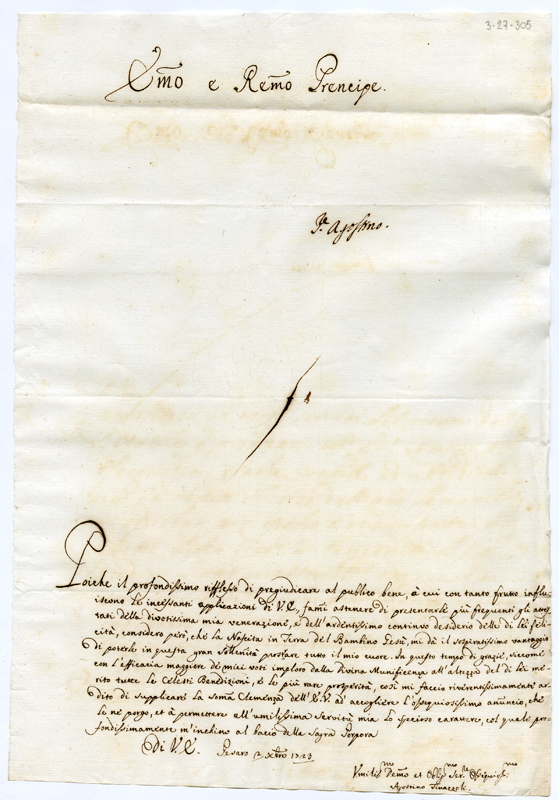 3-27-305
Emo e Remo Prencipe.
Agostino.
Poiche il profondissimo riflesso di pregiudicare al publico bene, à cui con tanto frutto influ-
iscono le incessanti applicazioni di V.E., fami astenere di presentarle più frequenti gli attes-
tati della divotissima mia venerazione, e dell'ardentissimo continuo desiderio della di lei feli-
cità, considero però, che la Nascita in Terra del Bambino Gesù, mi dà il sospiratissimo vantaggio
di poterle in questa gran sollennità prostrare tutto il mio cuore. In questo tempo di grazie, siccome
con l'efficacia maggiore de' miei voti imploro dalla Divina Munificenza all'Altezza del di lei me-
rito tutte le Celesti Benedizioni, e le più rare prosperità, così mi faccio riverentissimamente ar-
dito di supplicare la somã Clemenza dell'E.V. ad accogliere l'ossequiosissimo anuncio, che
le ne porgo, et à permettere all'umilissima servitù mia lo specioso carattere, col quale pro-
fondissimamente m'inchino al bacio della Sagra Porpora
Di V.E. Pesaro Xbre 1723
Umilissmo Devmo et Obligmo Serre Ossequiossmo
Agostino